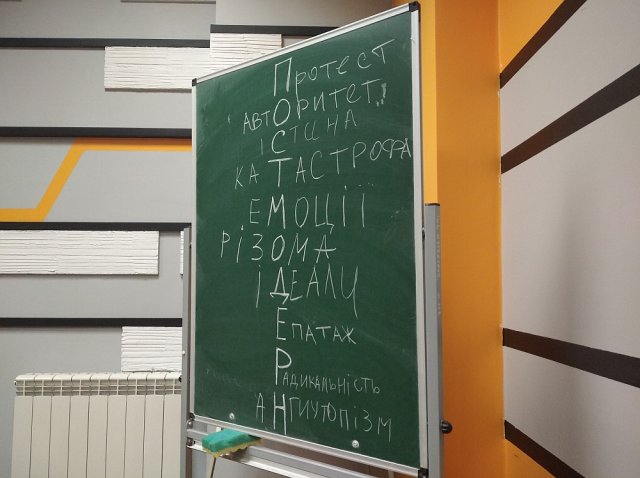 Протест
"АВТОРИТЕТ"
ІСТИНА
КАТАСТРОФА
ЕМОЦІЇ
РІЗОМА
ІДЕАЛИ
ЕПАТАЖ
РАДИКАЛЬНІСТЬ
АНТИУТОПІЗМ